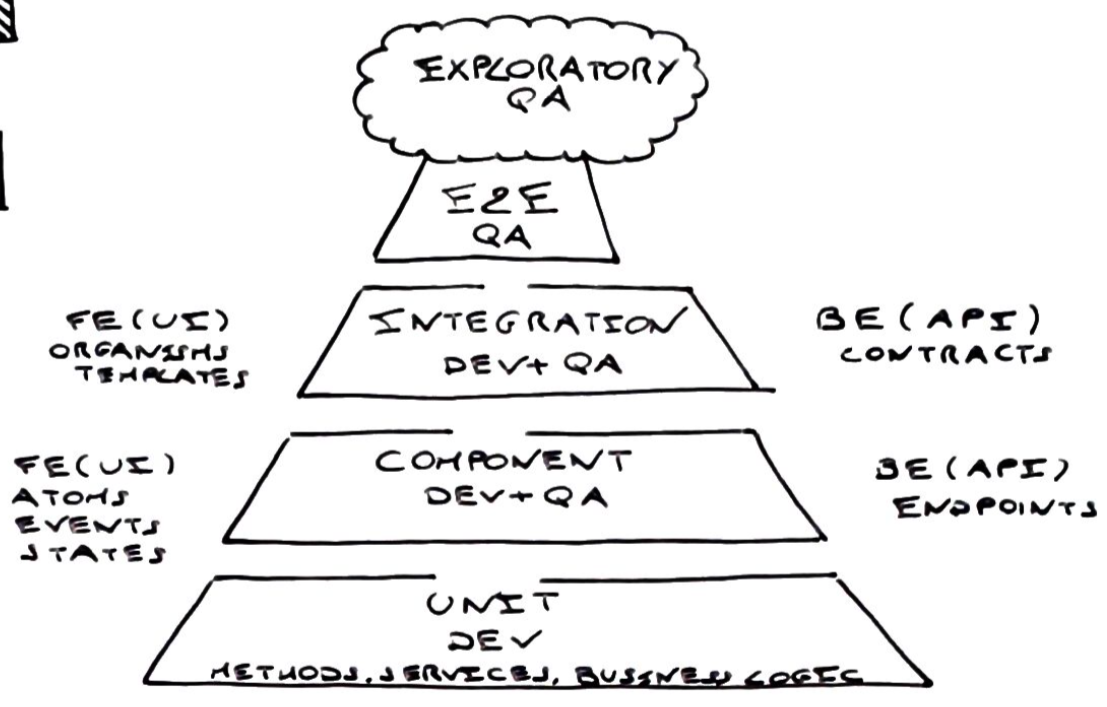 EXPLORATORY
QA
E2E
QA
FE(UI)
ORGANISMS
TEMPLATES
INTEGRATION
DEV+ QA
BE(API)
CONTRACTS
FE(UI)
ATOMS
EVENTS
STATES
COMPONENT
DEV+QA
BE(API)
ENDPOINTS
UNIT
DEV
METHODS, SERVICES, BUSSINESS LOGIC